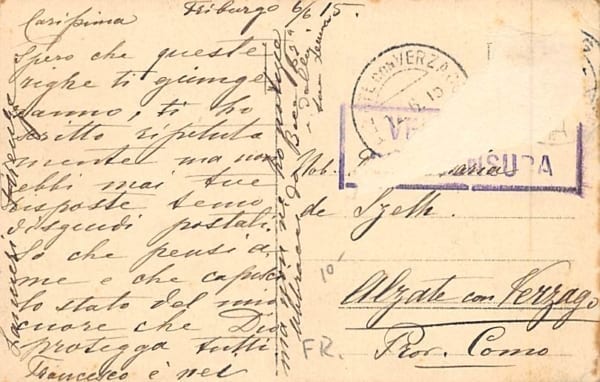 Friburgo 6/6 15.
Carissima
Spero che queste
righe ti giungeranno, ti ho
scritto ripetuta
mente ma non
ebbi mai tue
risposte temo
disguidi postali.
So che pensi a
me e che capisci
lo stato del mio
cuore che Dio
protegga tutti
Francesco è nel
ma non ne ho notizie
Baci
tua
ZATE con VERZAGO
6.15
VE
NSURA
Nob.
de Szeth.
Alzate con Verzago
Prov. Como
10
FR.